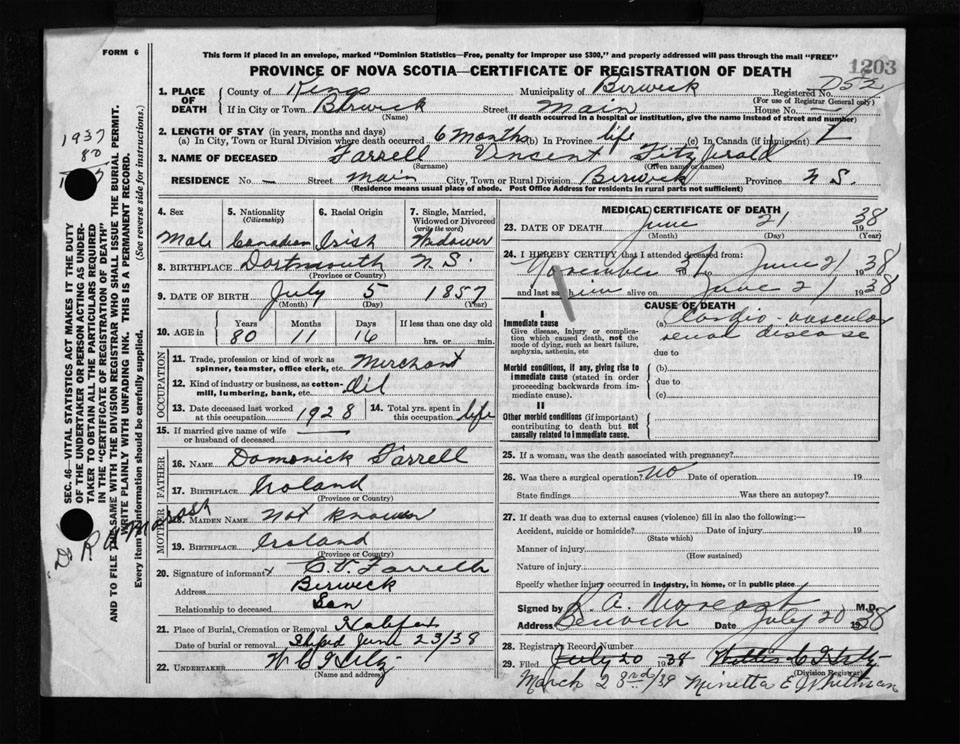 FORM 6
This form if placed in an envelope, marked "Dominion Statistics—Free, penalty for improper use $300," and properly addressed will pass through the mail "FREE"
1203
PROVINCE OF NOVA SCOTIA—CERTIFICATE OF REGISTRATION OF DEATH
1. PLACE OF DEATH County of Kings Municipality of Berwick Registered No.
(For use of Registrar General only)
If in City or Town Berwick Street Main House No.
(Name) (If death occurred in a hospital or institution, give the name instead of street and number)
2. LENGTH OF STAY (in years, months and days)
(a) In City, Town or Rural Division where death occurred 6 months (b) In Province life (c) In Canada (if immigrant)
3. NAME OF DECEASED Farrell Vincent Fitzgerald
(Surname) (Given name or names)
RESIDENCE No. — Street Main City, Town or Rural Division Berwick Province N S.
(Residence means usual place of abode. Post Office Address for residents in rural parts not sufficient)
1937
80
SEC. 46—VITAL STATISTICS ACT MAKES IT THE DUTY
OF THE UNDERTAKER OR PERSON ACTING AS UNDER-
TAKER TO OBTAIN ALL THE PARTICULARS REQUIRED
IN THE "CERTIFICATE OF REGISTRATION OF DEATH"
AND TO FILE SAME WITH THE DIVISION REGISTRAR WHO SHALL ISSUE THE BURIAL PERMIT.
WRITE PLAINLY WITH UNFADING INK. THIS IS A PERMANENT RECORD.
Every item of information should be carefully supplied. (See reverse side for instructions.)
4. Sex 5. Nationality (Citizenship) 6. Racial Origin 7. Single, Married, Widowed or Divorced (write the word)
Male Canadian Irish Widower
8. BIRTHPLACE Dartmouth N. S.
(Province or Country)
9. DATE OF BIRTH July 5 1857
(Month) (Day) (Year)
10. AGE in Years Months Days If less than one day old
80 11 16 hrs. or min.
OCCUPATION
11. Trade, profession or kind of work as spinner, teamster, office clerk, etc. Merchant
12. Kind of industry or business, as cotton-mill, lumbering, bank, etc. Oil
13. Date deceased last worked at this occupation 1928 14. Total yrs. spent in this occupation life
15. If married give name of wife or husband of deceased —
FATHER
16. NAME Domonick Farrell
17. BIRTHPLACE Ireland
(Province or Country)
MOTHER
18. MAIDEN NAME Not known
19. BIRTHPLACE Ireland
(Province or Country)
20. Signature of informant C. V. Farrell
Address Berwick
Relationship to deceased Son
21. Place of Burial, Cremation or Removal Halifax
Date of burial or removal June 23/38
22. UNDERTAKER
(Name and address)
MEDICAL CERTIFICATE OF DEATH
23. DATE OF DEATH June 21 1938
(Month) (Day) (Year)
24. I HEREBY CERTIFY that I attended deceased from:
November to June 21 1938
and last saw him alive on June 21 1938
CAUSE OF DEATH
I
Immediate cause (a) Cardio-vascular
renal disease
Give disease, injury or complication which caused death, not the mode of dying, such as heart failure, asphyxia, asthenia, etc
due to
Morbid conditions, if any, giving rise to immediate cause (stated in order proceeding backwards from immediate cause).
(b)
due to
(c)
II
Other morbid conditions (if important) contributing to death but not causally related to immediate cause.
25. If a woman, was the death associated with pregnancy?
26. Was there a surgical operation? No Date of operation 19
State findings Was there an autopsy?
27. If death was due to external causes (violence) fill in also the following:—
Accident, suicide or homicide? Date of injury 19
(State which)
Manner of injury
(How sustained)
Nature of injury
Specify whether injury occurred in industry, in home, or in public place
Signed by M.D.
Address Berwick Date July 20 1938
28. Registrar's Record Number
29. Filed July 20 1938
(Division Registrar)
March 23rd/39 Minetta E. Whitman